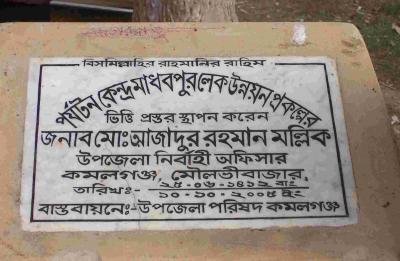 বিসমিল্লাহির রাহমানির রাহিম
পর্যটন কেন্দ্র মাধবপুর লেক উন্নয়ন প্রকল্পের
ভিত্তি প্রস্তর স্থাপন করেন
জনাব মোঃ আজাদুর রহমান মল্লিক
উপজেলা নির্বাহী অফিসার
কমলগঞ্জ, মৌলভীবাজার,
তারিখঃ- ২৫-০৬-১৪১২ বাং
১০-১০-২০০৫ ইং
বাস্তবায়নেঃ-উপজেলা পরিষদ কমলগঞ্জ